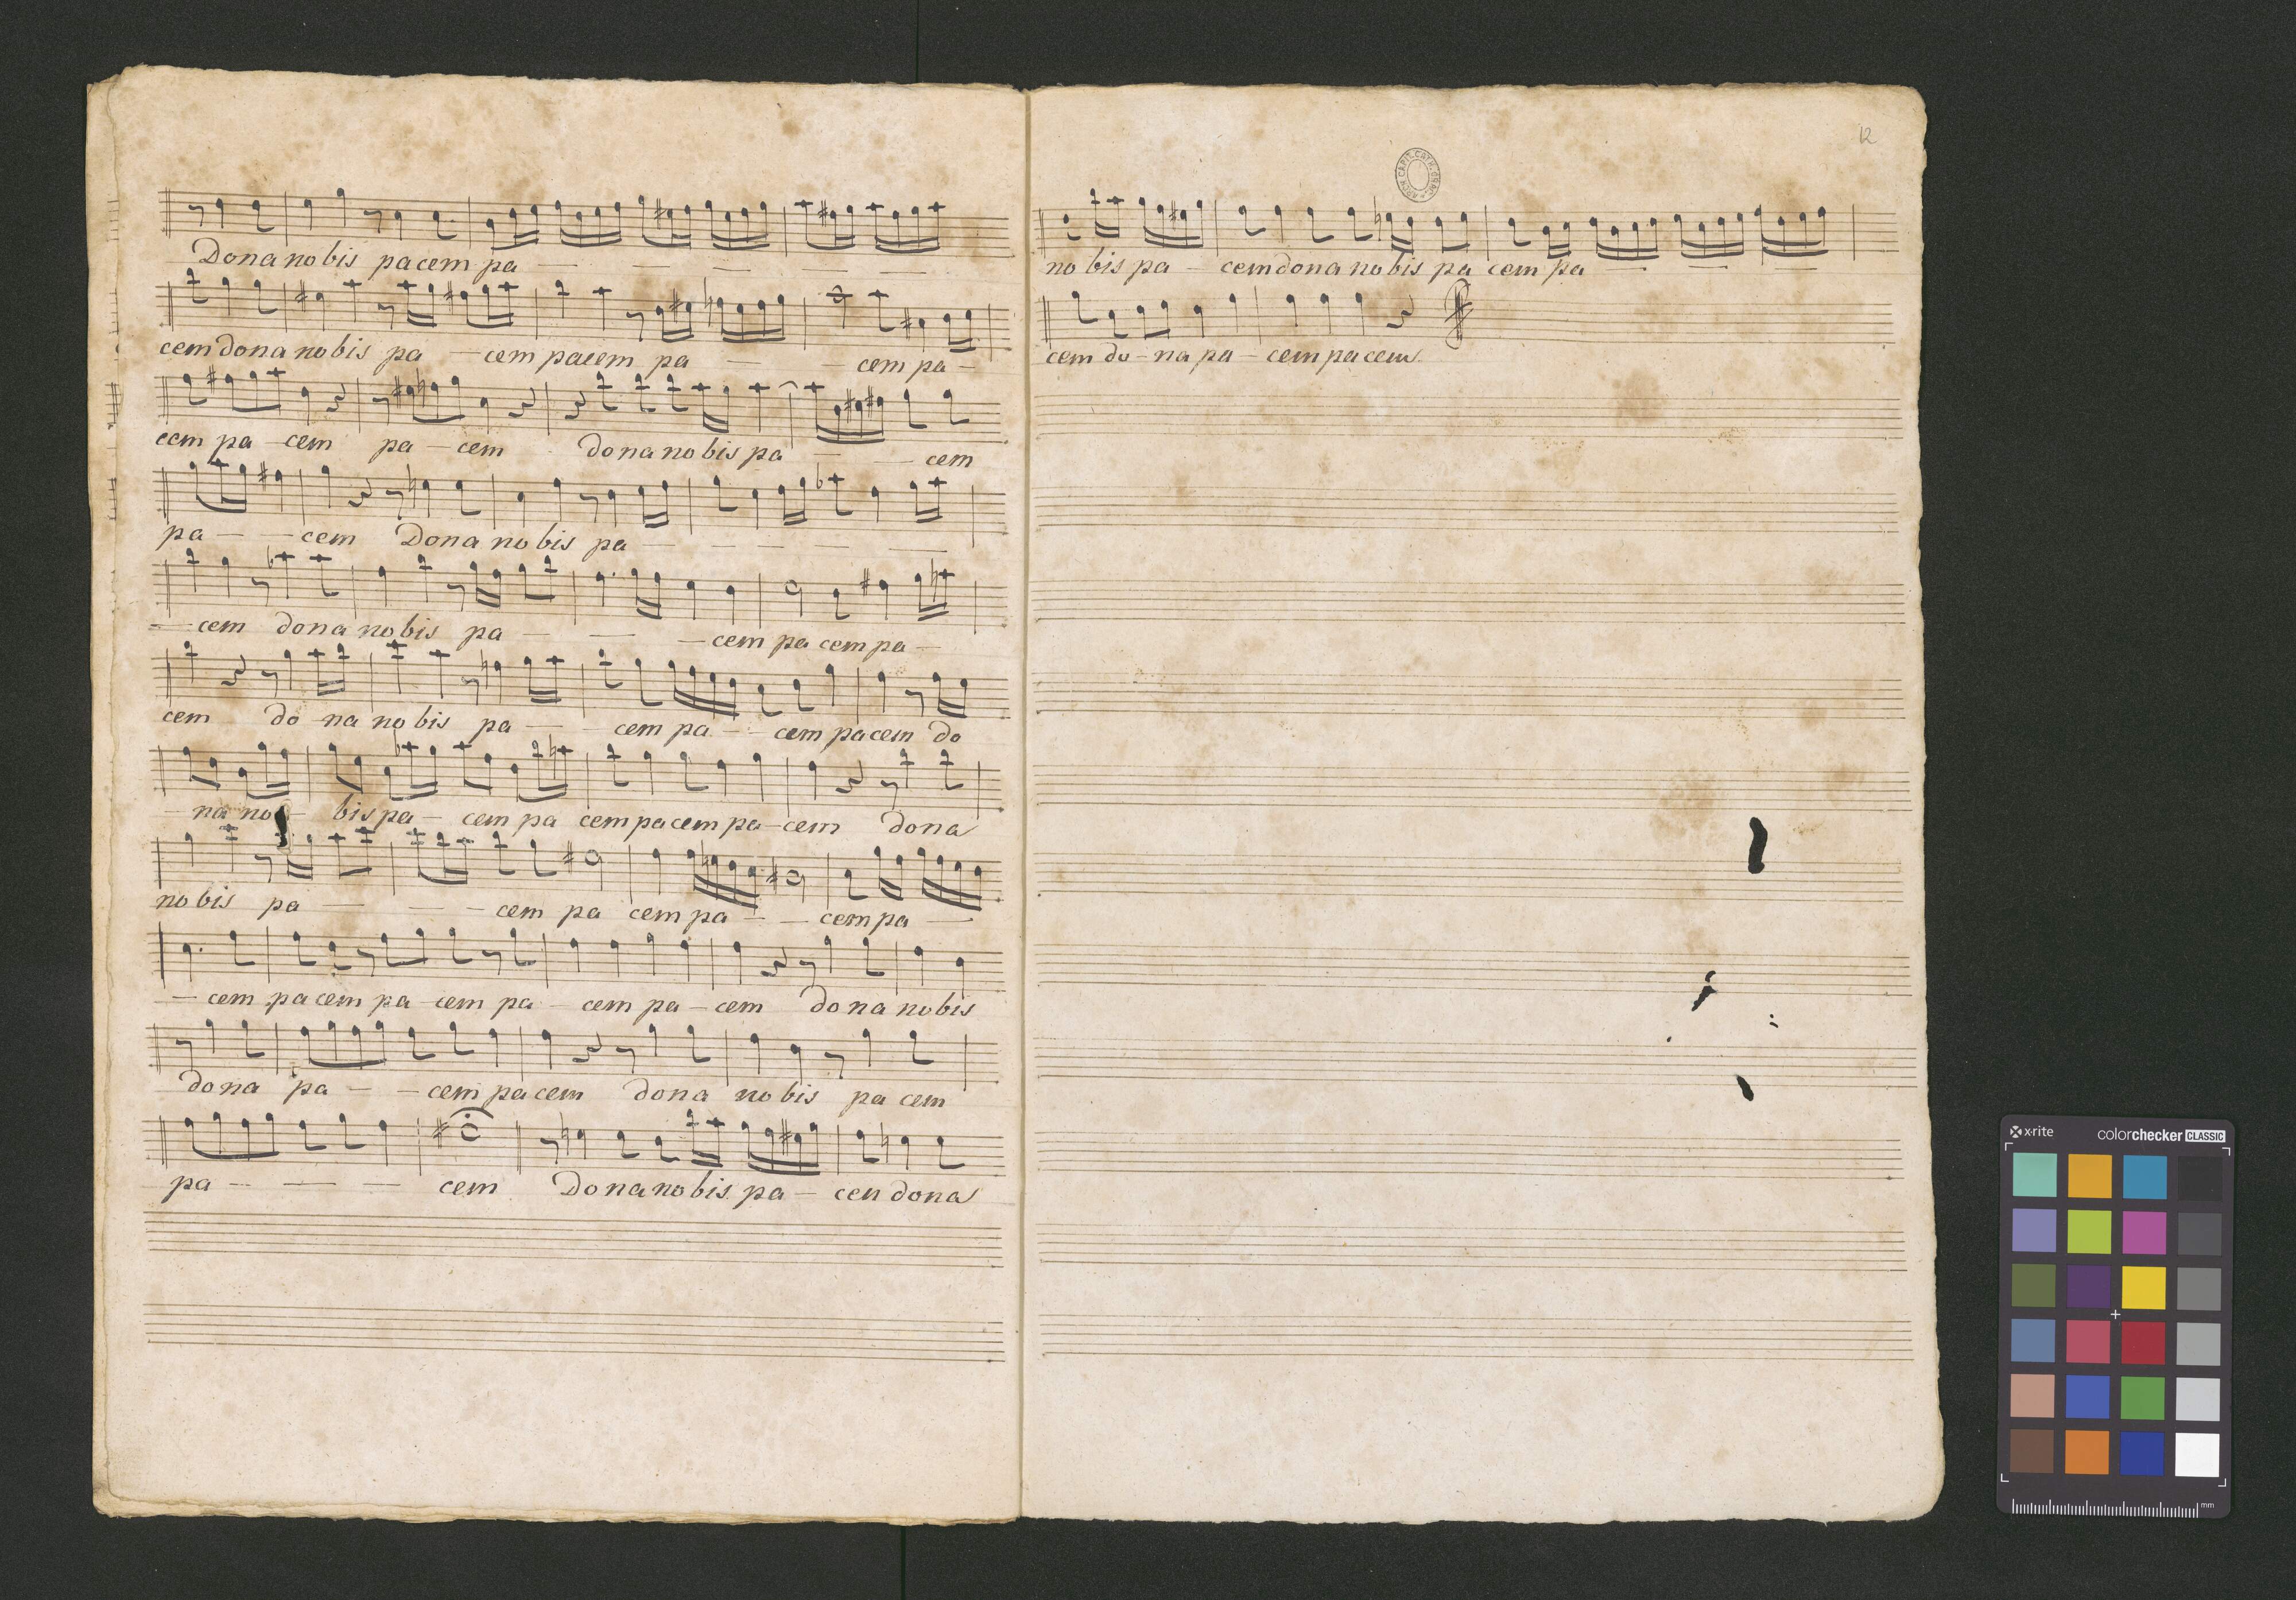 Dona no bis pacem pa — — — — — —
cem dona nobis pa — cem pacem pa — — cem pa —
cem pa — cem pa — cem dona nobis pa — — cem
pa — — cem Dona nobis pa — — — — —
— cem dona nobis pa — — — cem pa cem pa —
cem do na no bis pa — — cem pa — cem pacem do
— na no — bis pa — cem pa cem pacem pa — cem dona
nobis pa — — — cem pa cem pa — — cem pa —
— cem pacem pa cem pa — cem pa — cem dona nobis
dona pa — — cem pacem dona no bis pa cem
pa — — — cem Dona nobis pa — cen dona
12
ARCH. CAPIT. CATH. CRAC.
no bis pa — cem dona no bis pa cem pa — — —
cem do — na pa — cem pa cem
x-rite
colorchecker CLASSIC
mm